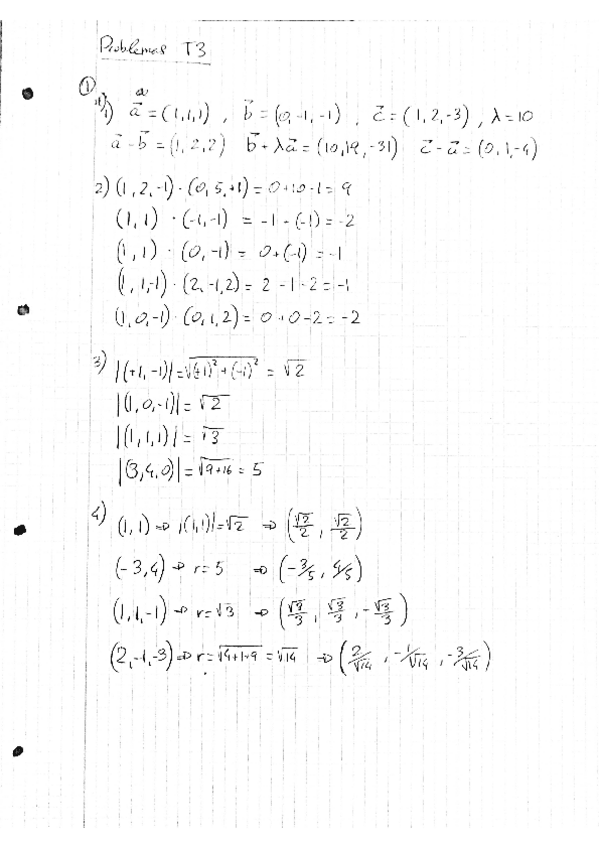 Problemas T3
①
1) a⃗ = (1,1,1) , b⃗ = (0,-1,-1) , c⃗ = (1,2,-3) , λ=10
a⃗ - b⃗ = (1,2,2) b⃗ + λa⃗ = (10,19,-31) c⃗ - a⃗ = (0,1,-4)
2) (1,2,-1)·(0,5,+1) = 0+10-1 = 9
(1,1)·(-1,-1) = -1-(-1) = -2
(1,1)·(0,-1) = 0+(-1) = -1
(1,1,-1)·(2,-1,2) = 2-1-2 = -1
(1,0,-1)·(0,1,2) = 0+0-2 = -2
3) |(+1,-1)| = √(+1)²+(-1)² = √2
|(1,0,-1)| = √2
|(1,1,1)| = √3
|(3,4,0)| = √9+16 = 5
4) (1,1) ⇒ |(1,1)| = √2 ⇒ (√2/2, √2/2)
(-3,4) ⇒ r=5 ⇒ (-3/5, 4/5)
(1,1,-1) ⇒ r=√3 ⇒ (√3/3, √3/3, -√3/3)
(2,-1,-3) ⇒ r=√4+1+9 = √14 ⇒ (2/√14, -1/√14, -3/√14)